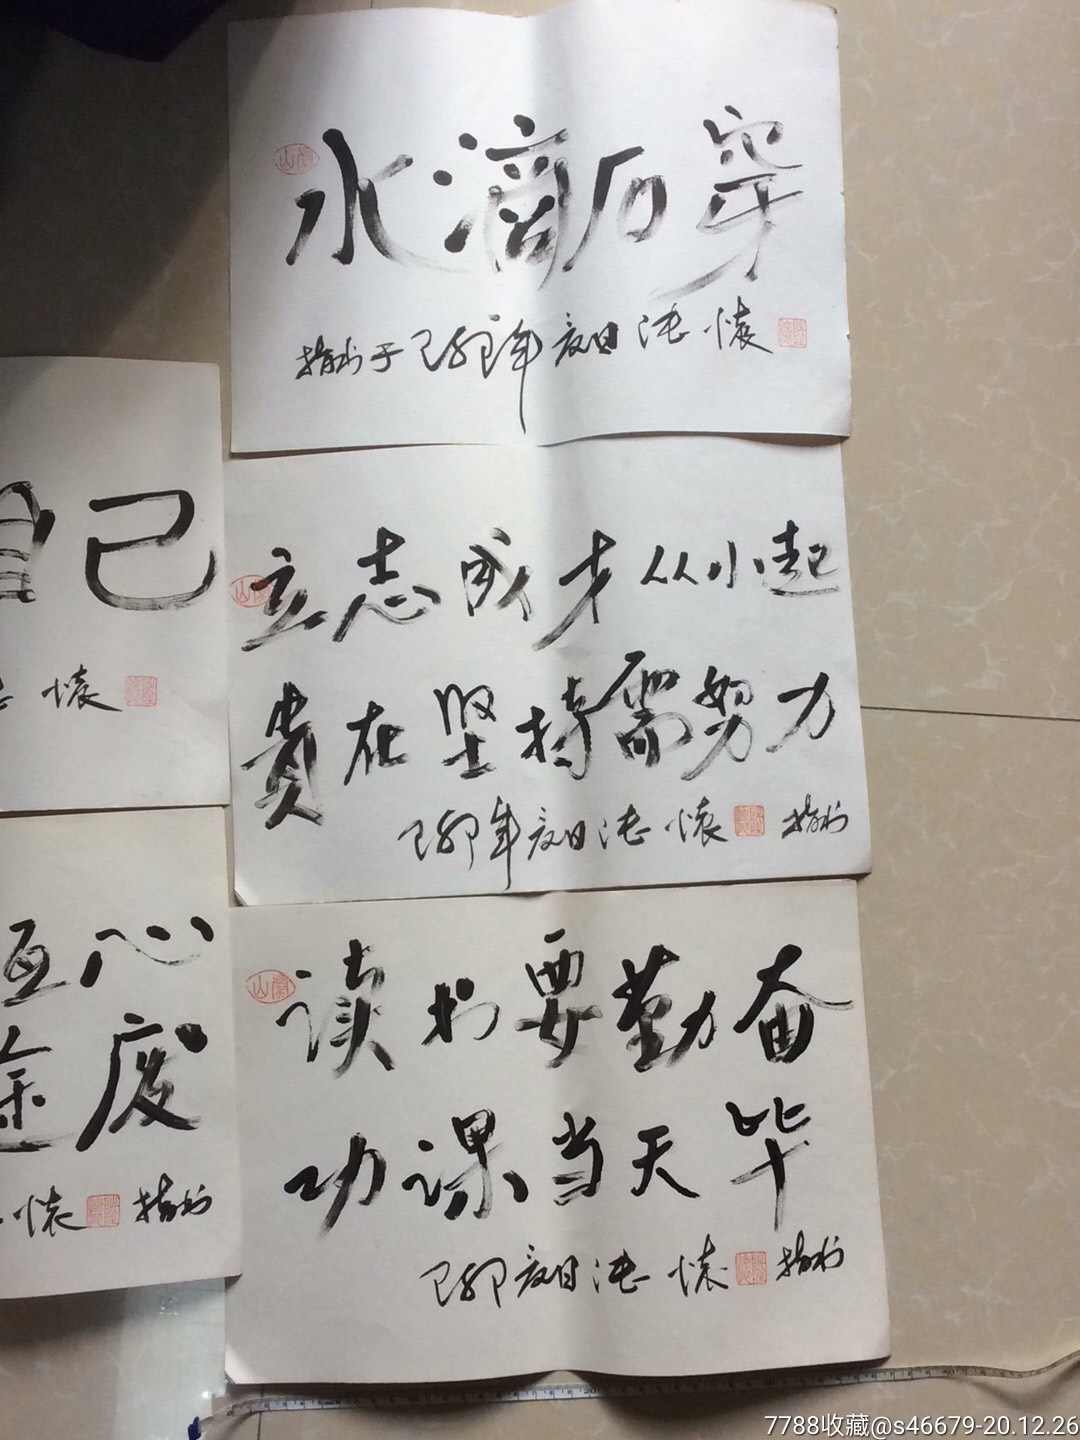 水滴石穿
指书于己卯年夏日 沈 怀
自己
怀
立志成才从小起
贵在坚持需努力
己卯年夏日 怀 指书
恒心
途废
怀 指书
读书要勤奋
功课当天毕
己卯夏日 怀 指书
7788收藏@s46679-20.12.26